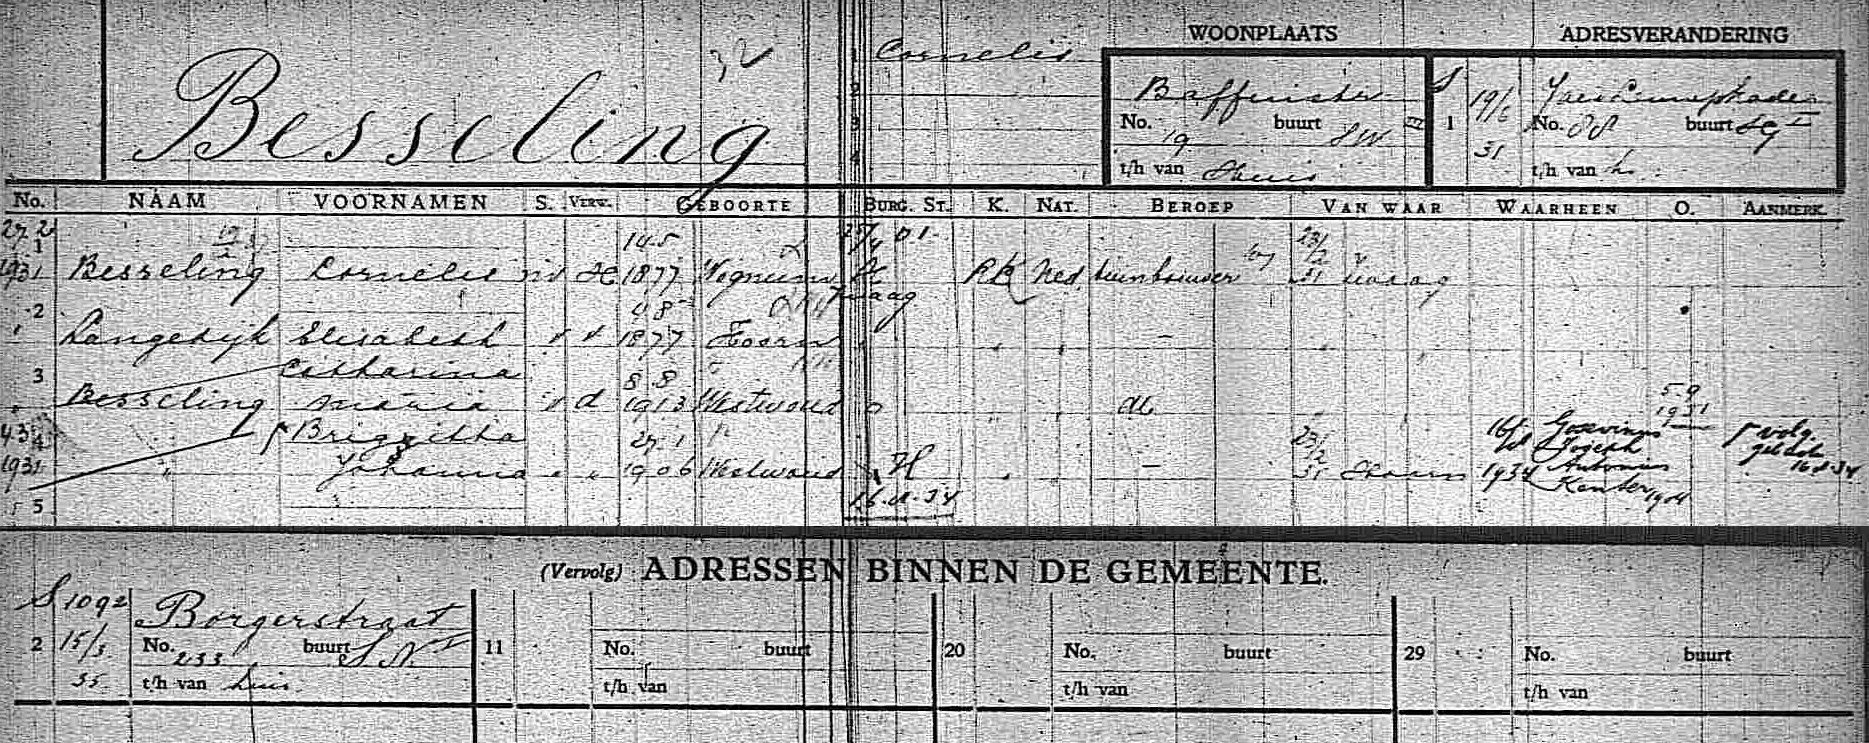 WOONPLAATS ADRESVERANDERING
Besseling
Cornelis
2
3
4
Baffinstr
No. 19 buurt SW
t/h van Huis
S 1 19/6 31
No. 88 buurt
t/h van h.
No. NAAM VOORNAMEN S. VERW. GEBOORTE BURG. ST. K. NAT. BEROEP VAN WAAR WAARHEEN O. AANMERK.
27 2 1 14 5 25/4 01 23/2
1931 Besseling Cornelis m H 1877 Wognum H RK Ned tuinbouwer 31 Zwaag
2 4 8 Zwaag
Langedijk Elisabeth v v 1877 Hoorn -
3 Catharina 8 8 5-9
Besseling Maria v d 1913 Westwoud o 1931
4 3 4 Briggitha 27 1 23/2 16/ Gosvinus volg.
1931 " Johanna " " 1906 Westwoud H - 31 Hoorn 1934 Joseph Antonius Kenter 1904 geb. 16-8-34
5 16-8-34
(Vervolg) ADRESSEN BINNEN DE GEMEENTE.
S 1092 Borgerstraat
2 15/3 No. 233 buurt S N 11 No. buurt 20 No. buurt 29 No. buurt
35 t/h van huis t/h van t/h van t/h van